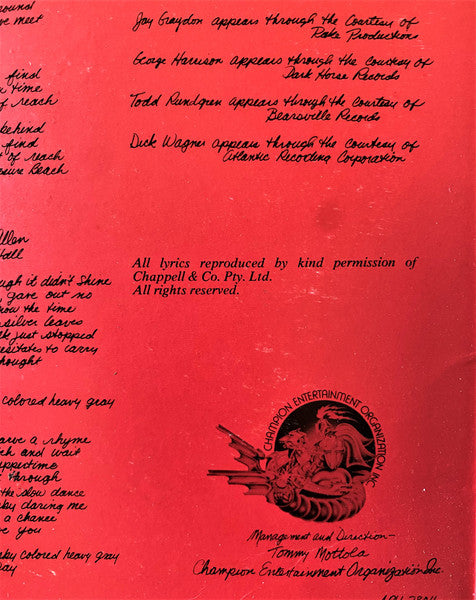 round
we meet
find
time
of reach
behind
find
t of reach
asure Beach
Allen
Hall
ugh it didn't shine
gave out no
now the time
silver leaves
just stopped
hesitates to carry
thought
colored heavy gray
carve a rhyme
ch and wait
uppertime
through
the slow dance
ky daring me
a chance
ve you
ky colored heavy gray
Jay Graydon appears through the Courtesy of
Rake Productions
George Harrison appears through the courtesy of
Dark Horse Records
Todd Rundgren appears through the courtesy of
Bearsville Records
Dick Wagner appears through the courtesy of
Atlantic Recording Corporation
All lyrics reproduced by kind permission of
Chappell & Co. Pty. Ltd.
All rights reserved.
CHAMPION ENTERTAINMENT ORGANIZATION, INC.
Management and Direction—
Tommy Mottola
Champion Entertainment Organization Inc.